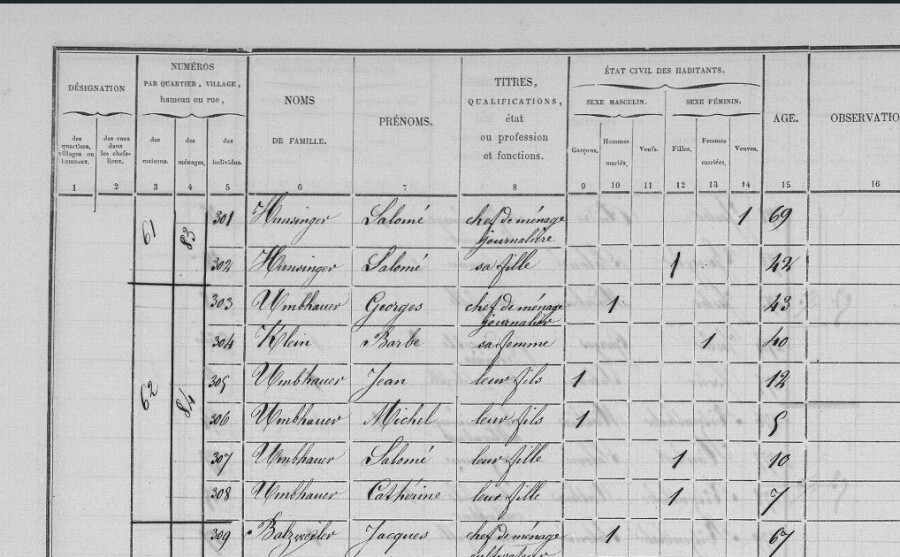 DÉSIGNATION
des quartiers, villages ou hameaux.
des rues dans les chefs-lieux.
NUMÉROS
PAR QUARTIER, VILLAGE,
hameau ou rue,
des maisons.
des ménages.
des individus.
NOMS
DE FAMILLE.
PRÉNOMS.
TITRES,
QUALIFICATIONS,
état
ou profession
et fonctions.
ÉTAT CIVIL DES HABITANTS.
SEXE MASCULIN. SEXE FÉMININ.
Garçons. Hommes mariés. Veufs. Filles. Femmes mariées. Veuves.
AGE.
OBSERVATIO
1 2 3 4 5 6 7 8 9 10 11 12 13 14 15 16
61 83 301 Hunsinger Salomé chef de ménage 1 69
journalière
302 Hunsinger Salomé sa fille 1 42
62 84 303 Umbhauer Georges chef de ménage 1 43
journalier
304 Klein Barbe sa femme 1 40
305 Umbhauer Jean leur fils 1 12
306 Umbhauer Michel leur fils 1 5
307 Umbhauer Salomé leur fille 1 10
308 Umbhauer Cathérine leur fille 1 7
309 Balzweiler Jacques chef de ménage 1 67
cultivateur